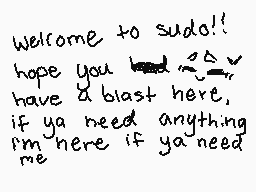 welcome to sudo!!
hope you
have a blast here,
if ya need anything
i'm here if ya need
me